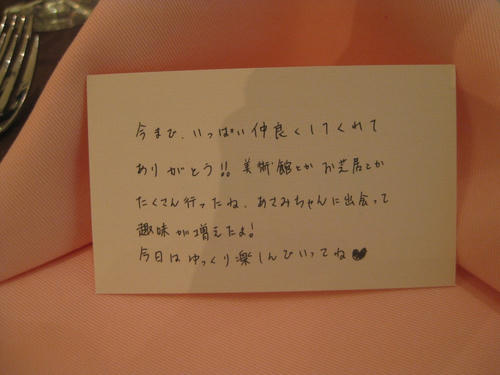 今まで、いっぱい仲良くしてくれて
ありがとう!! 美術館とかお芝居とか
たくさん行ったね。あさみちゃんに出会って
趣味が増えたよ!
今日はゆっくり楽しんでいってね♥